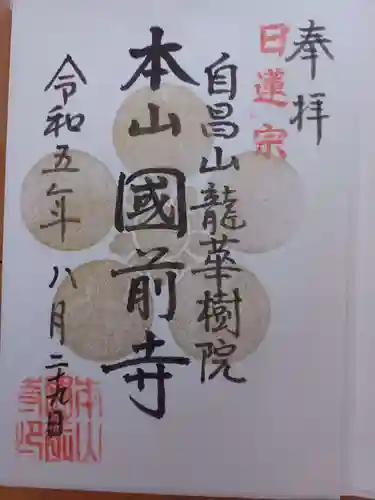 奉拝
日蓮宗
自昌山龍華樹院
本山國前寺
令和五年八月二十九日